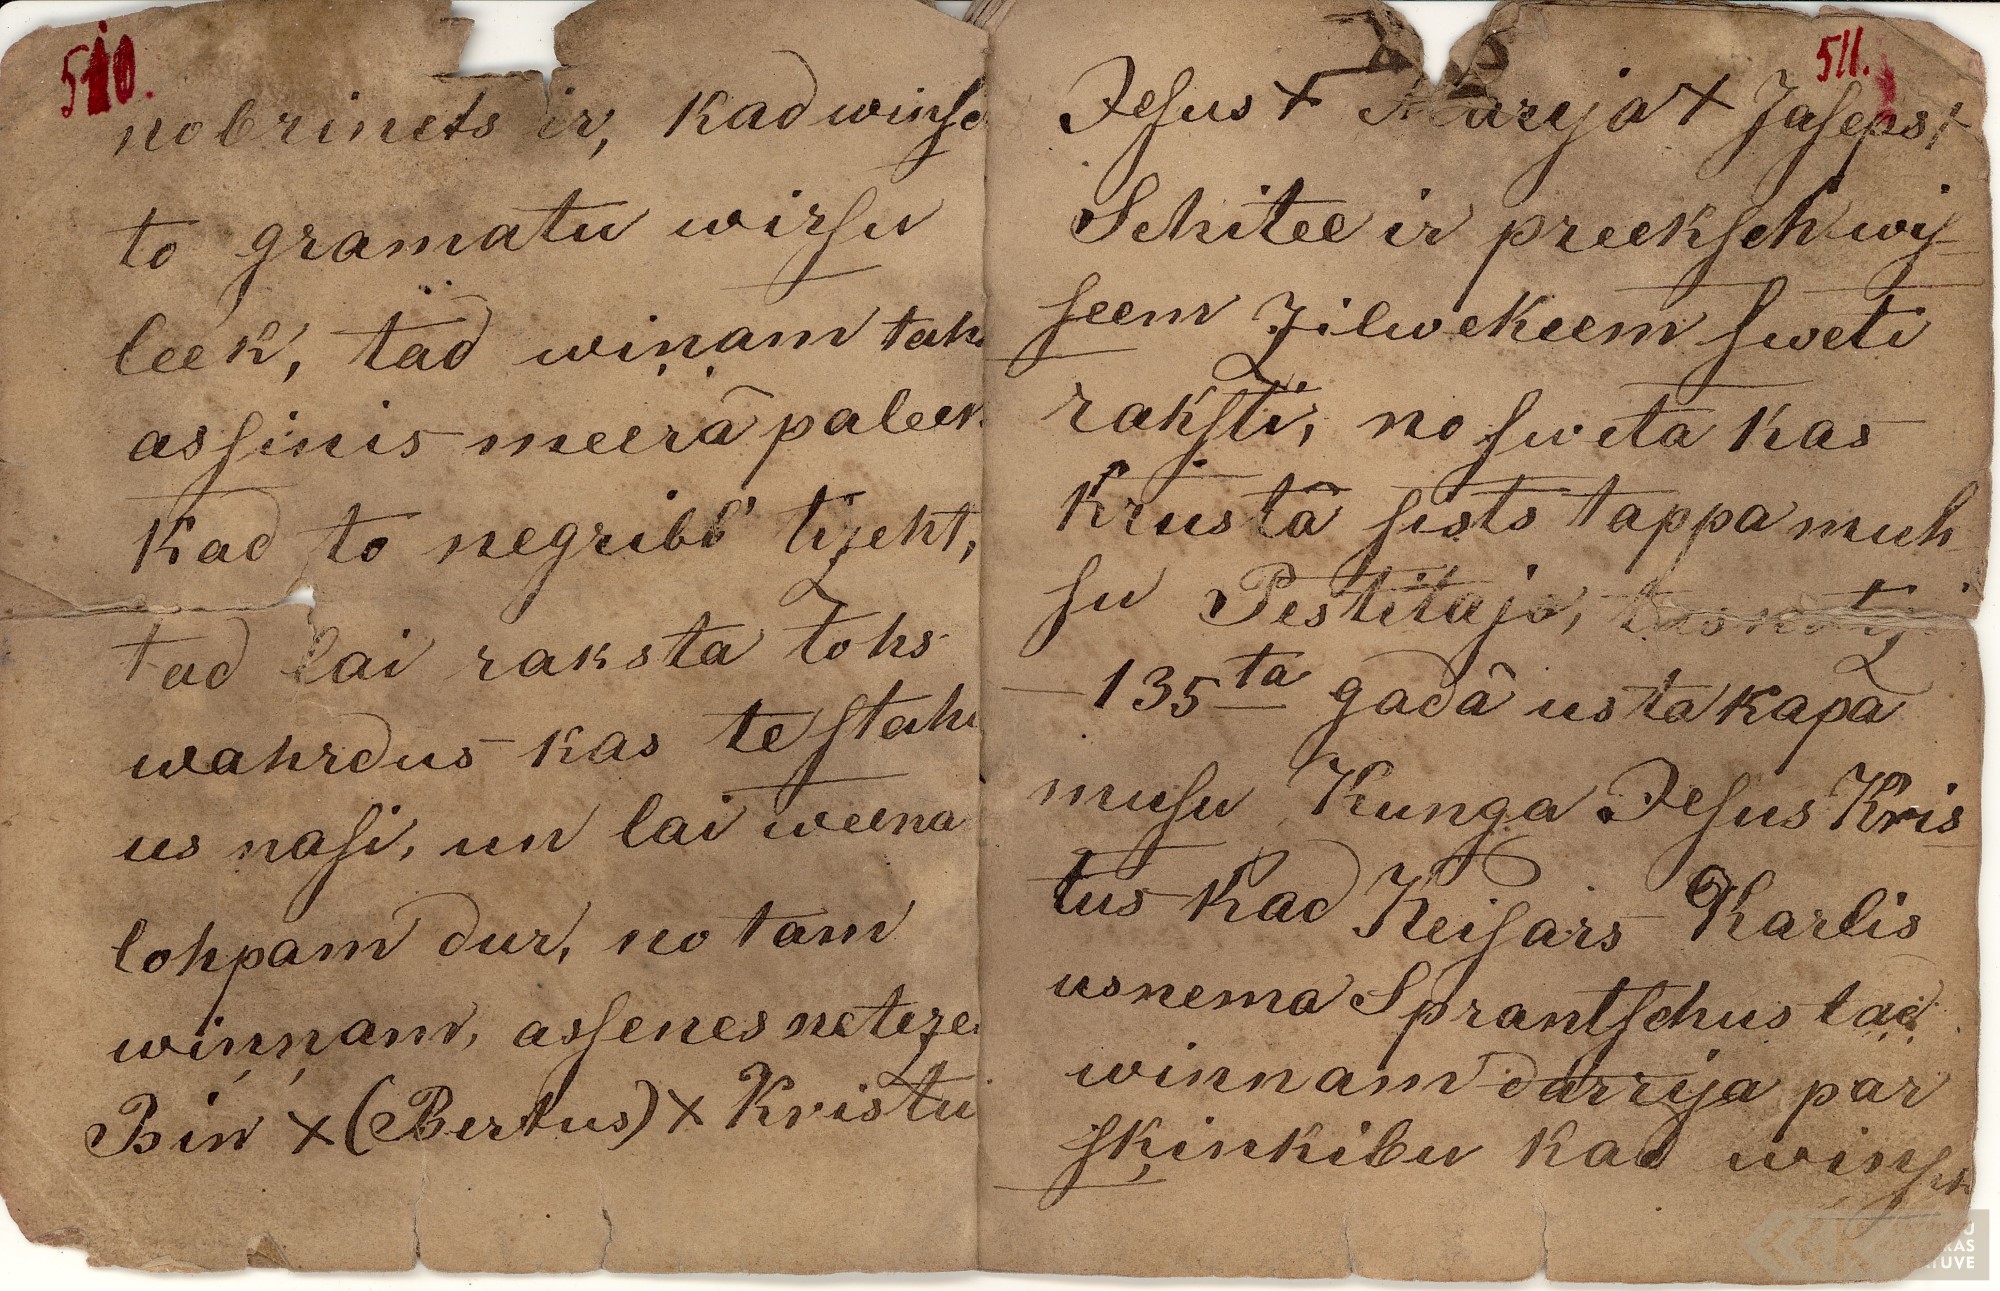 510.
nobrinets ir, kad winsc
to gramatu wirsu
leek, tad wiņam tah
assinis meerâ paleek
Kad to negribb' tizeht,
tad lai raksta tohs
wahrdus kas te stahw
us nasi, un lai weena
lohpam dur, no tam
wiņņam, assenes neteze
Bin × (Bertus) × Kristu
511.
Jesus + Marija + Jaseps +
Schitee ir preeksch wis-
seem Zilwekeem sweti
raksti, no sweta kas
Krusta sists tappa muh
su Pestitajo,
135ta gadâ us ta kapa
musu Kunga Jesus Kris
tus kad Keisars Karlis
usnema Sprantschus tad
winnam darrija par
skinkibu kad winsch